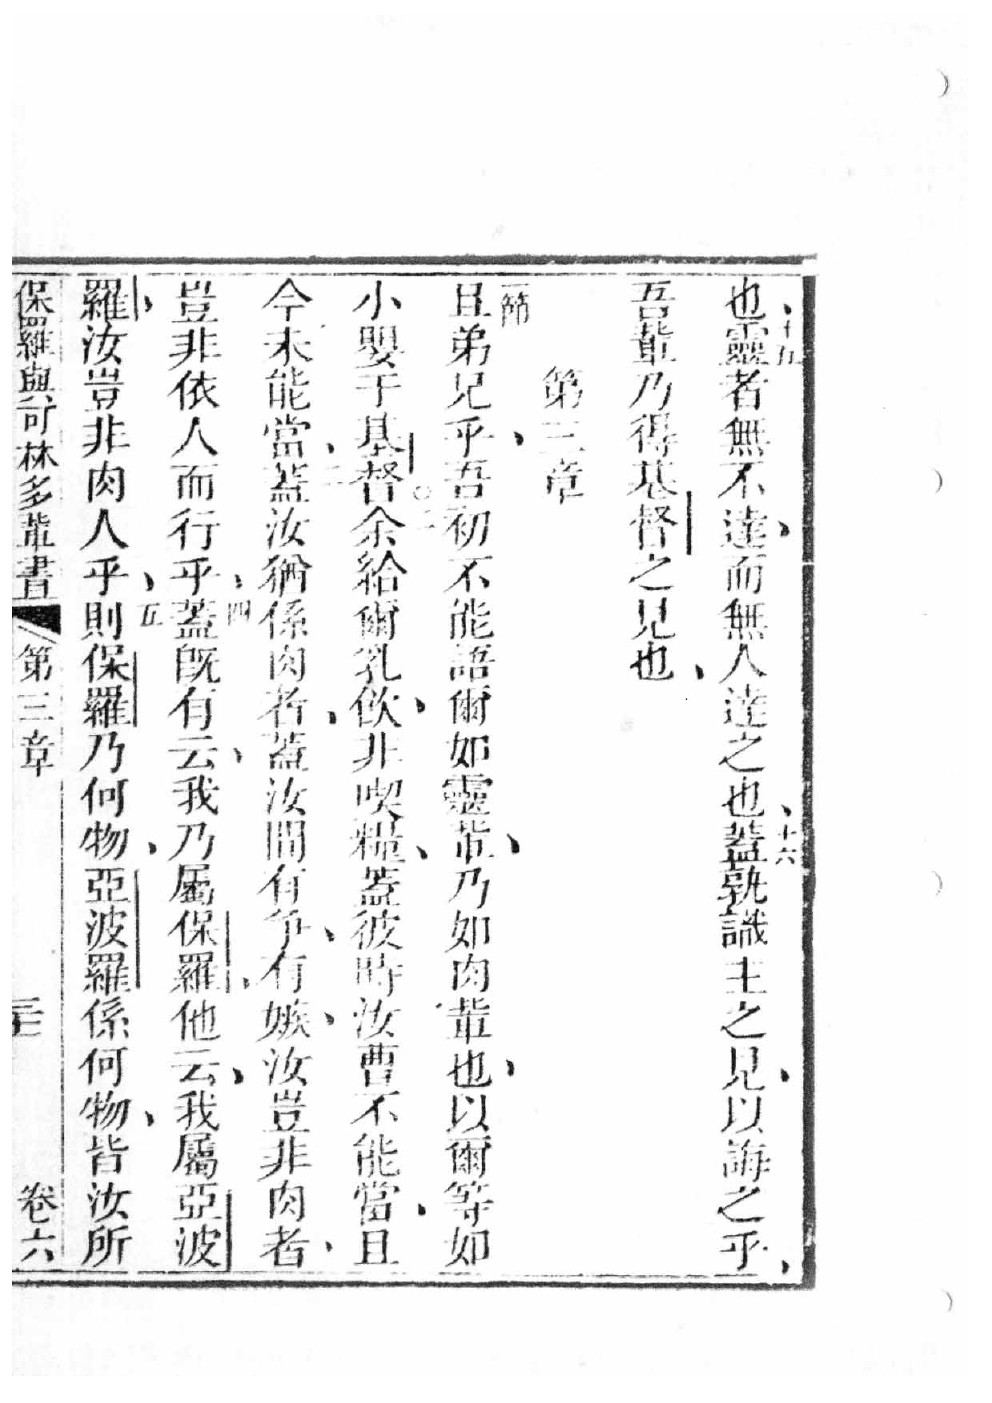 也、十五靈者無不達、而無人達之也、十六蓋孰識主之見、以誨之乎、
吾輩乃得基督之見也、
第三章
一節且弟兄乎、吾初不能語爾如靈輩、乃如肉輩也、以爾等如
小嬰于基督○二余給爾乳飲、非喫糧、蓋彼時汝曹不能當、且
今未能當、三蓋汝猶係肉者、蓋汝間有爭、有嫉、汝豈非肉者、
豈非依人而行乎、四蓋旣有云、我乃屬保羅、他云、我屬亞波
羅、汝豈非肉人乎、五則保羅乃何物、亞波羅係何物、皆汝所
保羅與可林多輩書 第三章 卷六